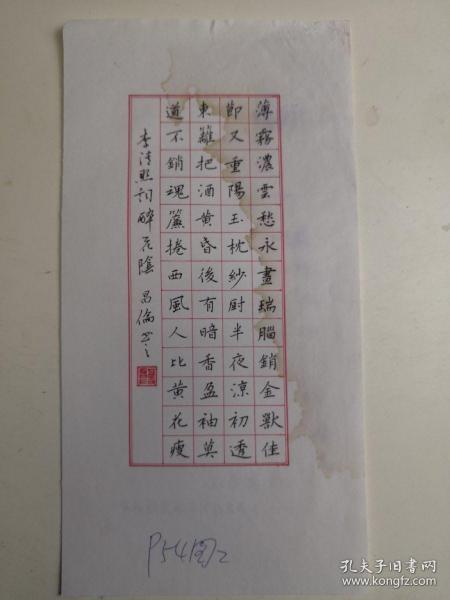 薄霧濃雲愁永晝瑞腦銷金獸佳
節又重陽玉枕紗厨半夜涼初透
東籬把酒黄昏後有暗香盈袖莫
道不銷魂簾捲西風人比黄花瘦
李清照詞醉花陰 昌倫
P54图2
孔夫子旧书网
www.kongfz.com